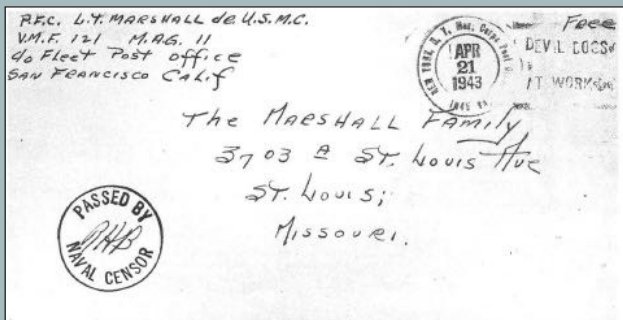 P.F.C. L.T. MARSHALL de U.S.M.C.
V.M.F. 121 M.A.G. 11
c/o Fleet Post office
SAN FRANCISCO CALIF
Free
NEW YORK, N.Y. Mar. Corps Post
APR
21
1943
DEVIL DOGS
AT WORK
The MARSHALL Family
3703 A ST. Louis Ave
ST. Louis;
Missouri.
PASSED BY
NAVAL CENSOR